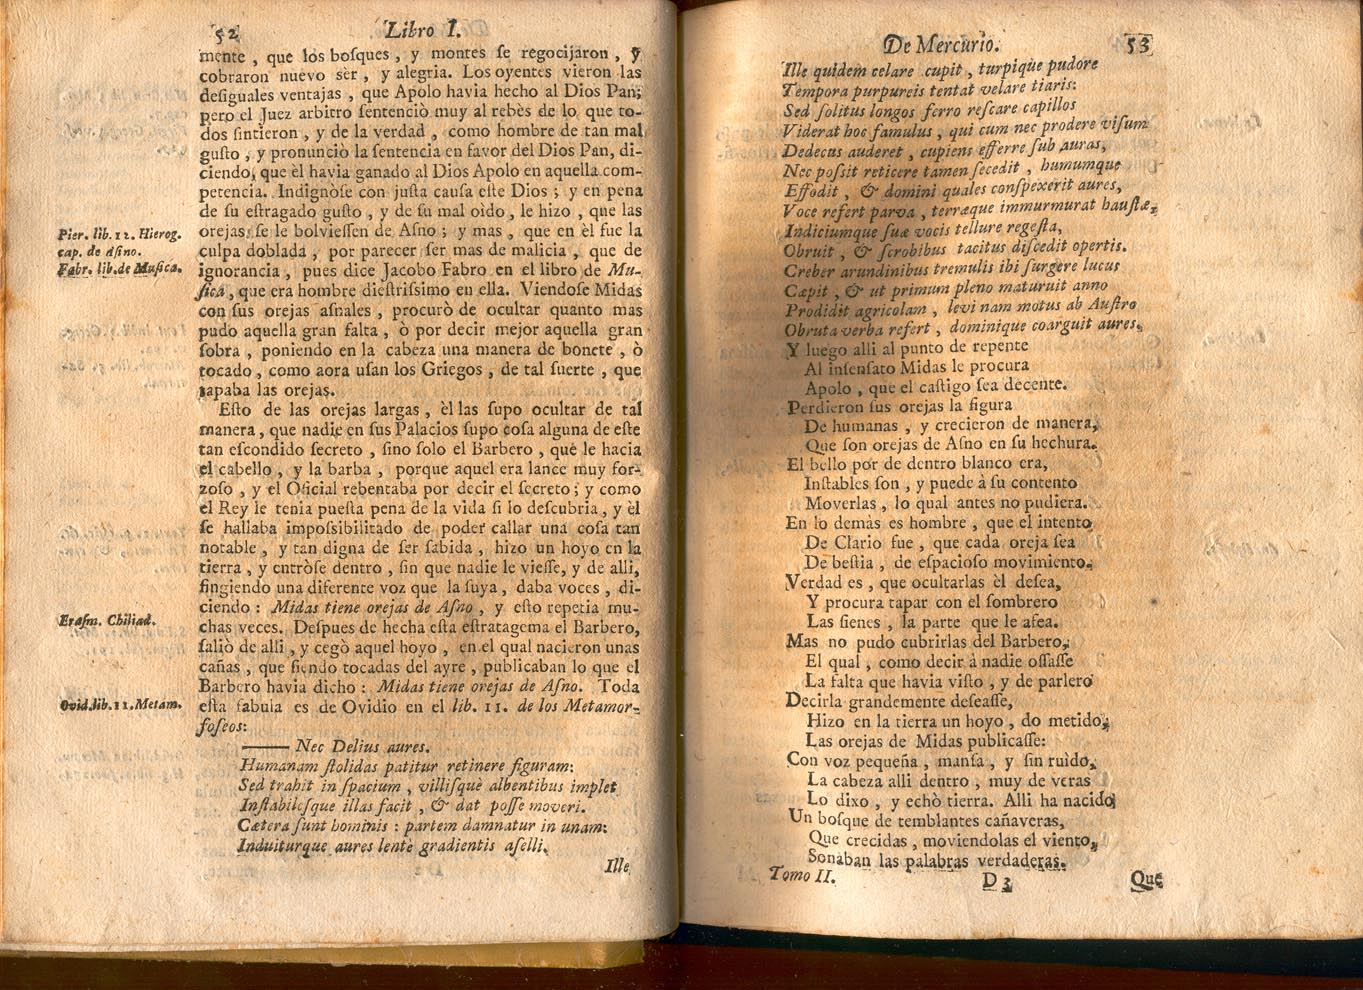 52 Libro I.
mente, que los boſques, y montes ſe regocijaron, y
cobraron nuevo sèr, y alegria. Los oyentes vieron las
deſiguales ventajas, que Apolo havia hecho al Dios Pan;
pero el Juez arbitro ſentenciò muy al rebès de lo que to-
dos ſintieron, y de la verdad, como hombre de tan mal
guſto, y pronunciò la ſentencia en favor del Dios Pan, di-
ciendo, que èl havia ganado al Dios Apolo en aquella com-
petencia. Indignòſe con juſta cauſa eſte Dios; y en pena
de ſu eſtragado guſto, y de ſu mal oìdo, le hizo, que las
orejas ſe le bolvieſſen de Aſno; y mas, que en èl fue la
culpa doblada, por parecer ſer mas de malicia, que de
ignorancia, pues dice Jacobo Fabro en el libro de Mu-
ſica, que era hombre dieſtriſsimo en ella. Viendoſe Midas
con ſus orejas aſnales, procurò de ocultar quanto mas
pudo aquella gran falta, ò por decir mejor aquella gran
ſobra, poniendo en la cabeza una manera de bonete, ò
tocado, como aora uſan los Griegos, de tal ſuerte, que
tapaba las orejas.
Eſto de las orejas largas, èl las ſupo ocultar de tal
manera, que nadie en ſus Palacios ſupo coſa alguna de eſte
tan eſcondido ſecreto, ſino ſolo el Barbero, que le hacia
el cabello, y la barba, porque aquel era lance muy for-
zoſo, y el Oficial rebentaba por decir el ſecreto; y como
el Rey le tenia pueſta pena de la vida ſi lo deſcubria, y èl
ſe hallaba impoſsibilitado de poder callar una coſa tan
notable, y tan digna de ſer ſabida, hizo un hoyo en la
tierra, y entròſe dentro, ſin que nadie le vieſſe, y de alli,
fingiendo una diferente voz que la ſuya, daba voces, di-
ciendo: Midas tiene orejas de Aſno, y eſto repetia mu-
chas veces. Deſpues de hecha eſta eſtratagema el Barbero,
ſaliò de alli, y cegò aquel hoyo, en el qual nacieron unas
cañas, que ſiendo tocadas del ayre, publicaban lo que el
Barbero havia dicho: Midas tiene orejas de Aſno. Toda
eſta fabula es de Ovidio en el lib. 11. de los Metamor-
foſeos:
—— Nec Delius aures.
Humanam ſtolidas patitur retinere figuram:
Sed trahit in ſpacium, villiſquè albentibus implet
Inſtabileſque illas facit, & dat poſſe moveri.
Cætera ſunt hominis: partem damnatur in unam:
Induiturque aures lente gradientis aſelli.
Ille
Pier. lib. 12. Hierog.
cap. de Aſino.
Fabr. lib. de Muſica.
Eraſm. Chiliad.
Ovid. lib. 11. Metam.
De Mercurio. 53
Ille quidem celare cupit, turpique pudore
Tempora purpureis tentat velare tiaris:
Sed ſolitus longos ferro reſcare capillos
Viderat hoc famulus, qui cum nec prodere viſum
Dedecus auderet, cupiens efferre ſub auras,
Nec poſsit reticere tamen ſecedit, humumque
Effodit, & domini quales conſpexerit aures,
Voce refert parva, terræque immurmurat hauſtæ,
Indiciumque ſuæ vocis tellure regeſta,
Obruit, & ſcrobibus tacitus diſcedit opertis.
Creber arundinibus tremulis ibi ſurgere lucus
Cæpit, & ut primum pleno maturuit anno
Prodidit agricolam, levi nam motus ab Auſtro
Obruta verba refert, dominique coarguit aures.
Y luego alli al punto de repente
Al inſenſato Midas le procura
Apolo, que el caſtigo ſea decente.
Perdieron ſus orejas la figura
De humanas, y crecieron de manera,
Que ſon orejas de Aſno en ſu hechura.
El bello por de dentro blanco era,
Inſtables ſon, y puede à ſu contento
Moverlas, lo qual antes no pudiera.
En lo demàs es hombre, que el intento
De Clario fue, que cada oreja ſea
De beſtia, de eſpacioſo movimiento.
Verdad es, que ocultarlas èl deſea,
Y procura tapar con el ſombrero
Las ſienes, la parte que le afea.
Mas no pudo cubrirlas del Barbero,
El qual, como decir à nadie oſſaſſe
La falta que havia viſto, y de parlero
Decirla grandemente deſeaſſe,
Hizo en la tierra un hoyo, do metido,
Las orejas de Midas publicaſſe:
Con voz pequeña, manſa, y ſin ruìdo,
La cabeza alli dentro, muy de veras
Lo dixo, y echò tierra. Alli ha nacido
Un boſque de temblantes cañaveras,
Que crecidas, moviendolas el viento,
Sonaban las palabras verdaderas.
Tomo II. D 3 Que